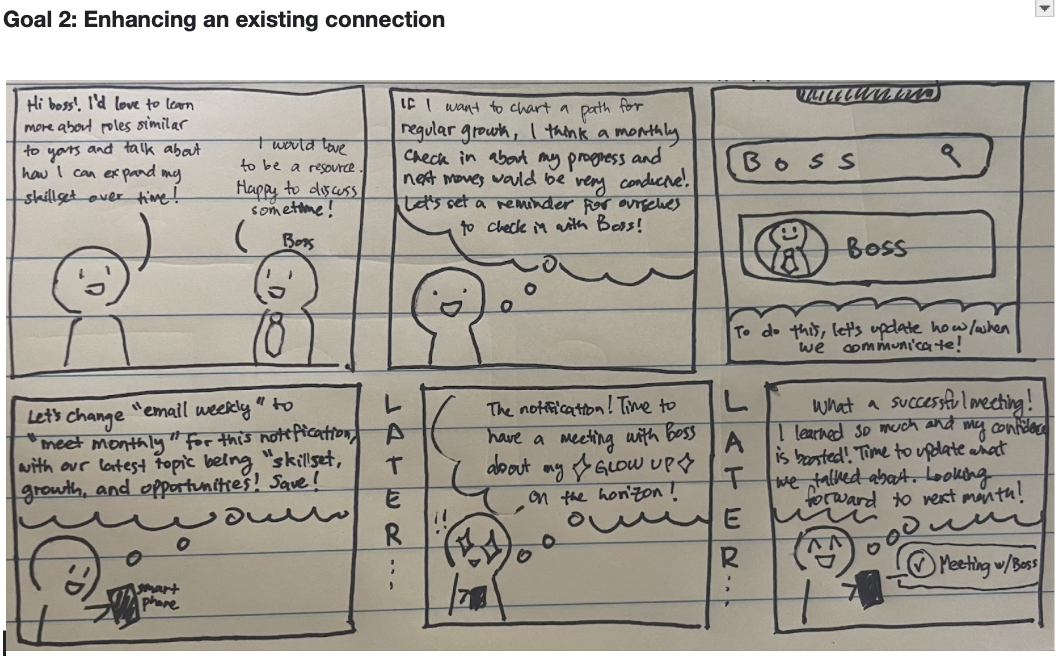 Goal 2: Enhancing an existing connection
Hi boss! I'd love to learn
more about roles similar
to yours and talk about
how I can expand my
skillset over time!
I would love
to be a resource.
Happy to discuss
sometime!
Boss
If I want to chart a path for
regular growth, I think a monthly
check in about my progress and
next moves would be very conducive!
Let's set a reminder for ourselves
to check in with Boss!
BOSS
BOSS
To do this, let's update how/when
we communicate!
Let's change "email weekly" to
"meet monthly" for this notification,
with our latest topic being "skillset,
growth, and opportunities! Save!
smart
phone
LATER...
The notification! Time to
have a meeting with Boss
about my GLOW UP
on the horizon!
!!
LATER...
What a successful meeting!
I learned so much and my confidence
is boosted! Time to update what
we talked about. Looking
forward to next month!
Meeting w/Boss